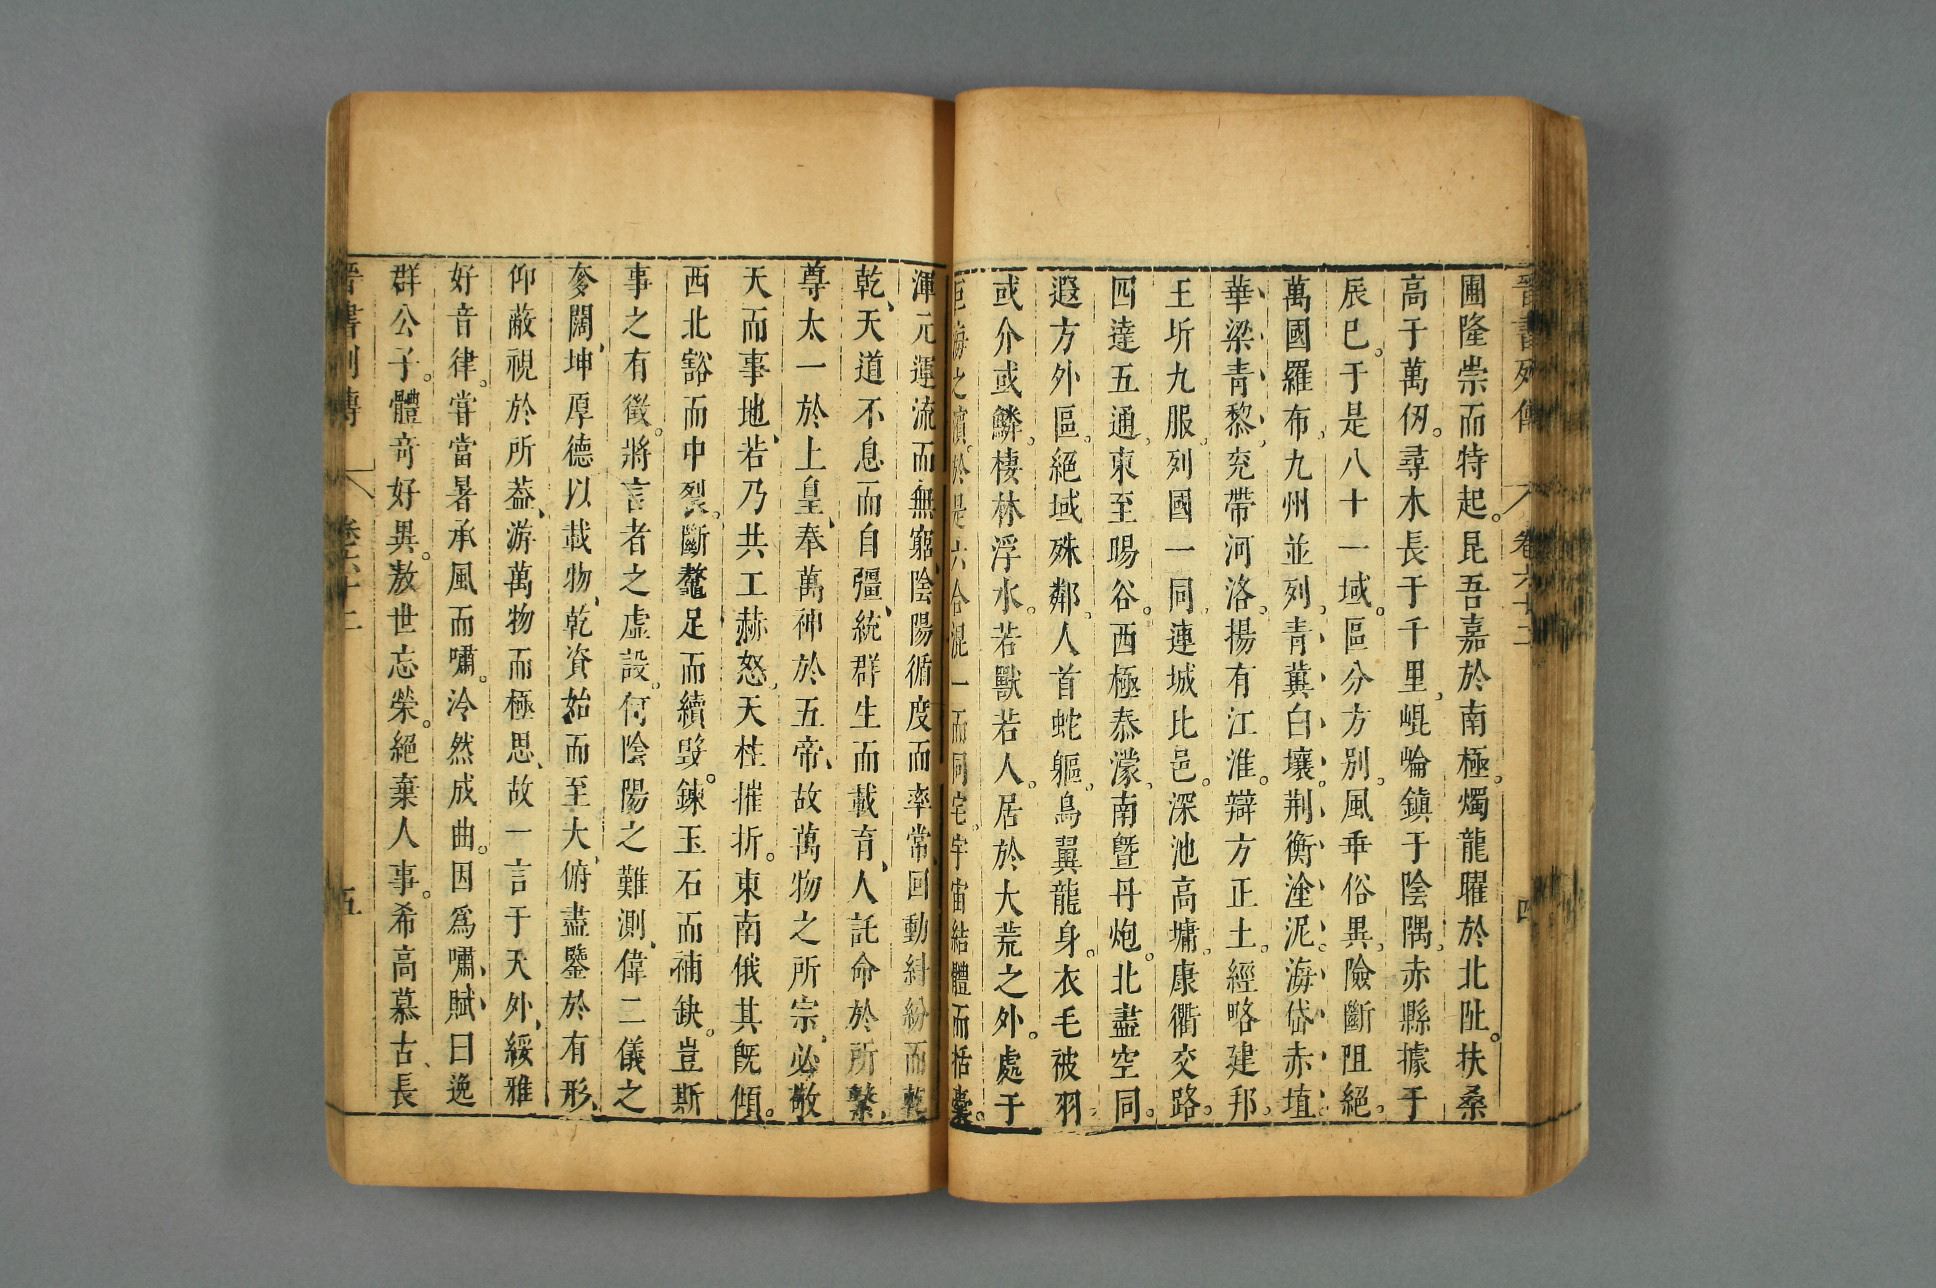 晉書列傳 卷六十二 四
圃隆崇而特起。昆吾嘉於南極。燭龍曜於北阯。扶桑
高于萬仞。尋木長于千里、崐崘鎮于陰隅。赤縣據于
辰巳。于是八十一域。區分方別。風乖俗異。險斷阻絕。
萬國羅布、九州並列、青冀白壤。荆衡塗泥。海岱赤埴
華梁青黎、兖帶河洛。揚有江淮。辯方正土。經略建邦。
王圻九服、列國一同、連城比邑。深池高墉。康衢交路。
四達五通、東至暘谷。西極泰濛、南曁丹炮。北盡空同。
遐方外區。絕域殊鄰、人首蛇軀。鳥翼龍身。衣毛被羽
或介或鱗、棲林浮水。若獸若人。居於大荒之外。處于
巨海之濵。於是六合混一而同宅。宇宙結體而括囊。
渾元運流而無窮、陰陽循度而率常、回動糾紛而乾
乾、天道不息而自彊、統群生而載育、人託命於所繫、
尊太一於上皇、奉萬神於五帝、故萬物之所宗、必敬
天而事地、若乃共工赫怒、天柱摧折。東南俄其旣傾。
西北豁而中裂。斷鼇足而續毀。鍊玉石而補缺。豈斯
事之有徵。將言者之虛設。何陰陽之難測、偉二儀之
奓闊、坤厚德以載物、乾資始而至大、俯盡鑒於有形、
仰蔽視於所葢、游萬物而極思、故一言于天外、綏雅
好音律。嘗當暑承風而嘯。泠然成曲。因爲嘯賦曰逸
群公子。體奇好異。敖世忘榮。絕棄人事。希高慕古、長
晉書列傳 卷六十二 五